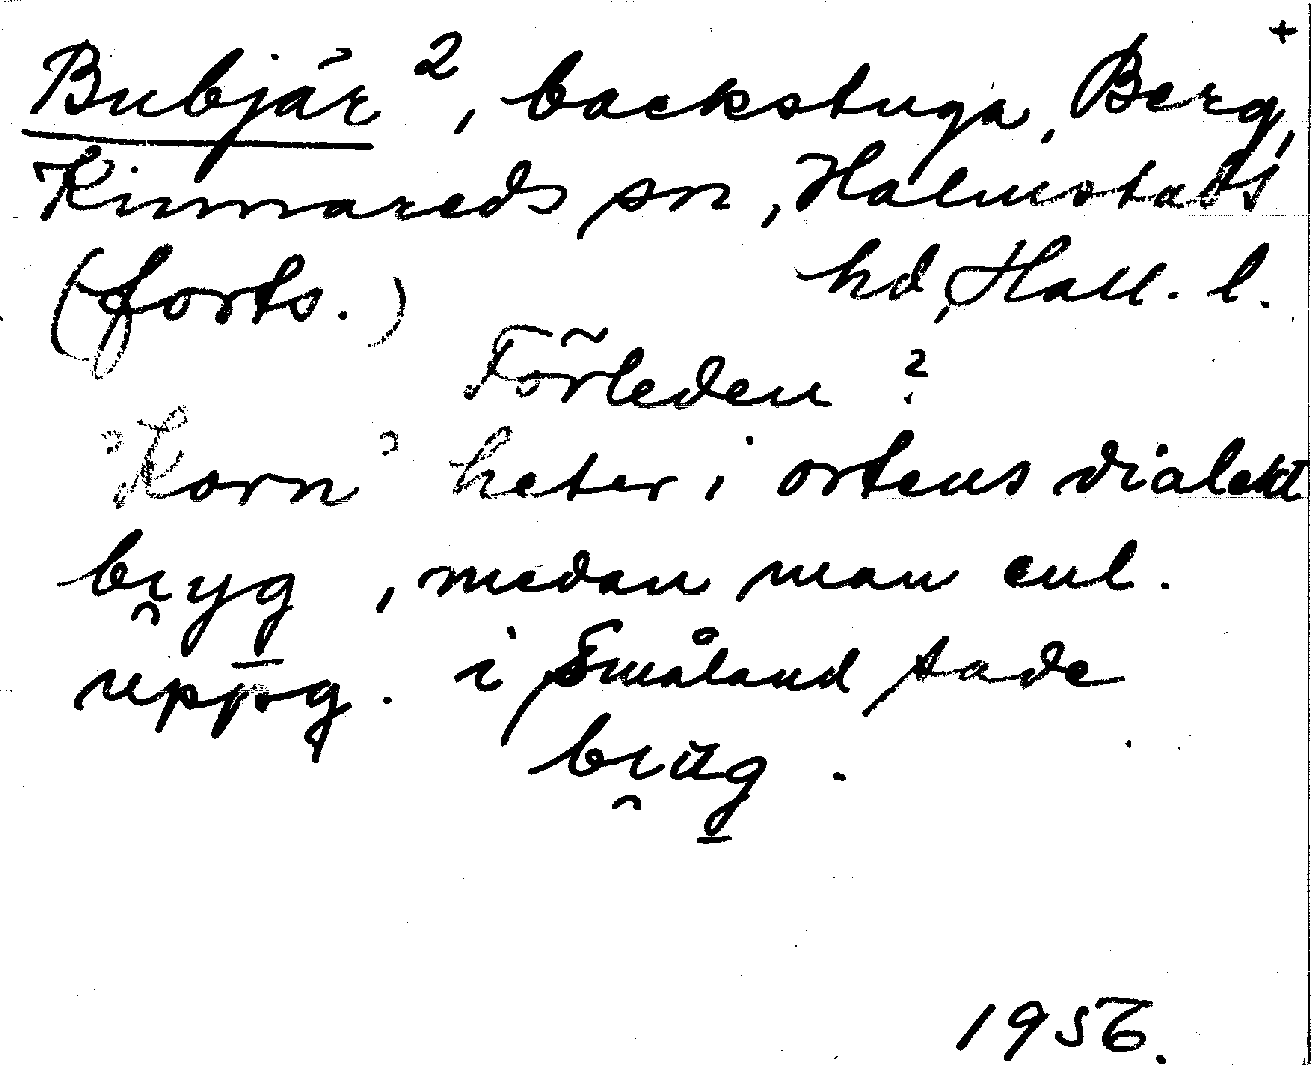 +
Bubjär 2, backstuga, Berg,
Kinnareds sn, Halmstads
(forts.) hd, Hall. l.
Förleden ?
"Korn" heter i ortens dialekt
bryg, medan man enl.
uppg. i Småland sade
brüg.
1956.